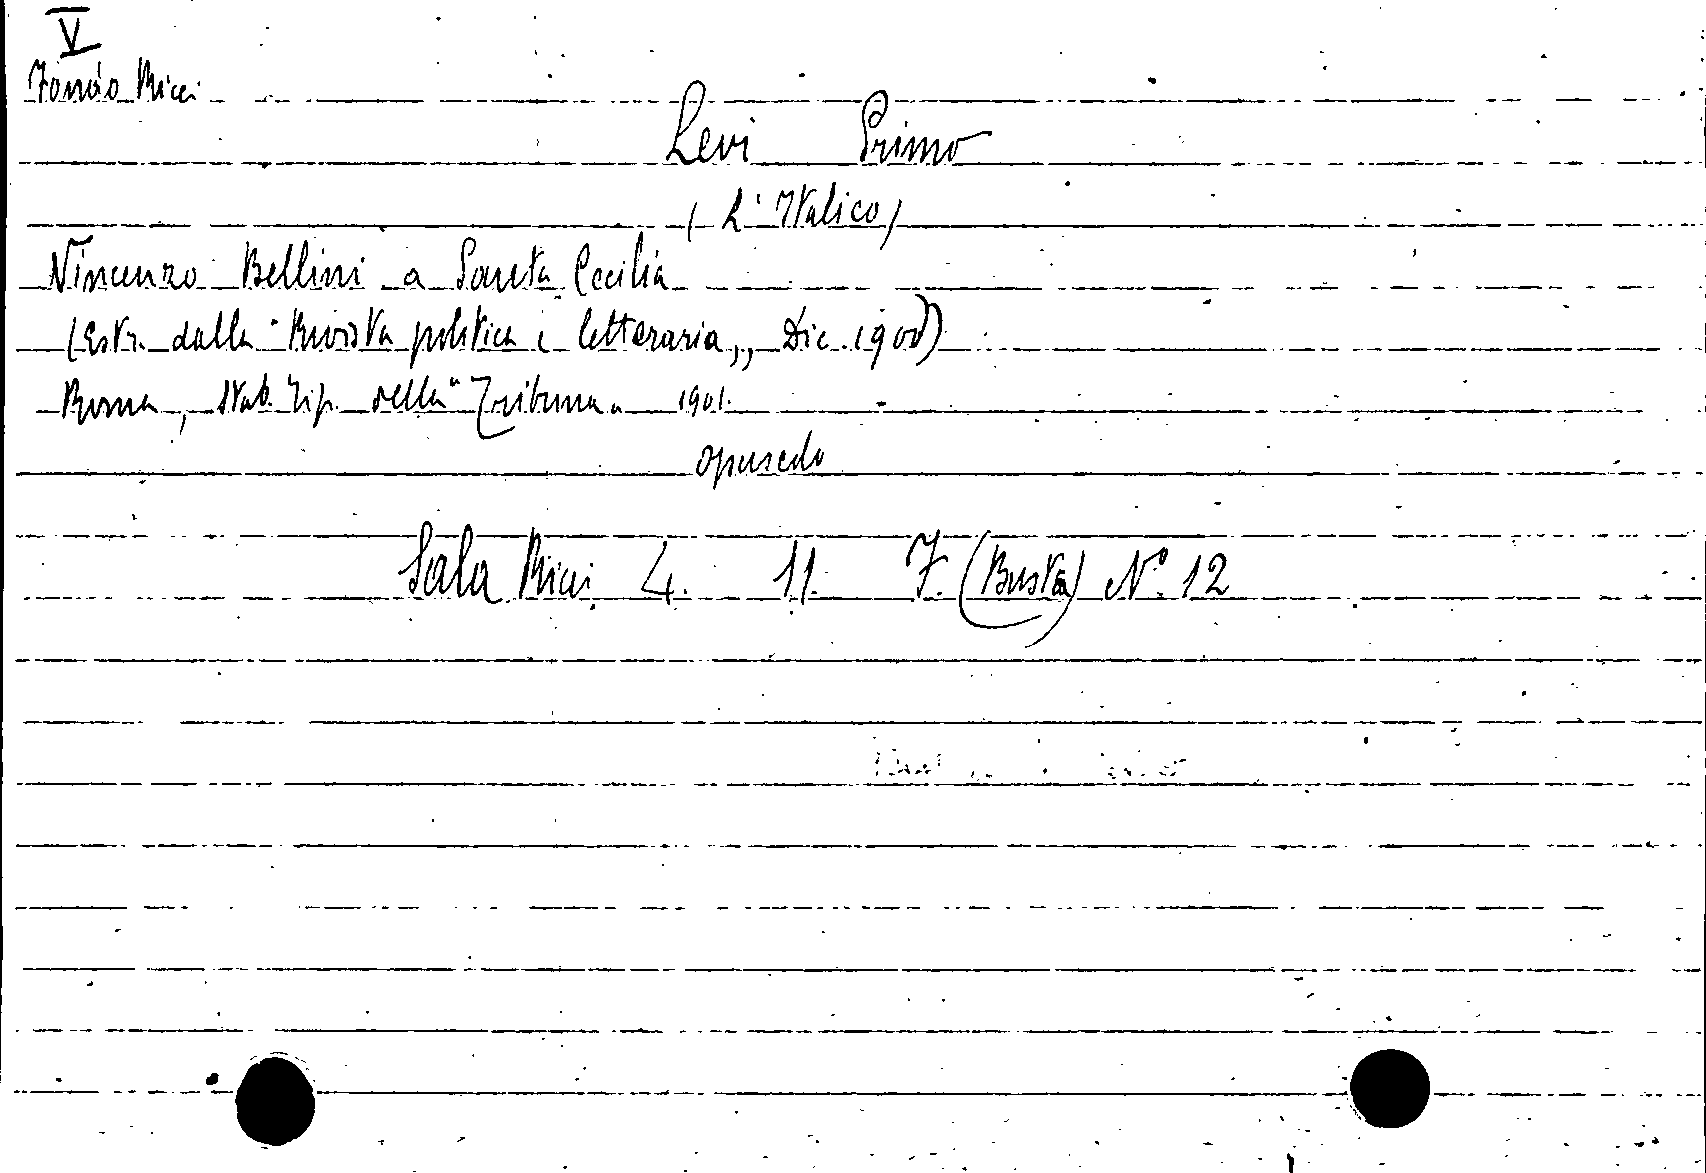 V
Fondo Ricci
Levi Primo
(L'Italico)
Vincenzo Bellini a Santa Cecilia
(Estr. dalla "Rivista politica e letteraria,, Dic. 1900)
Roma, Stab. Tip. della "Tribuna" 1901.
opuscolo
Sala Ricci 4. 11. F. (Busta) N° 12